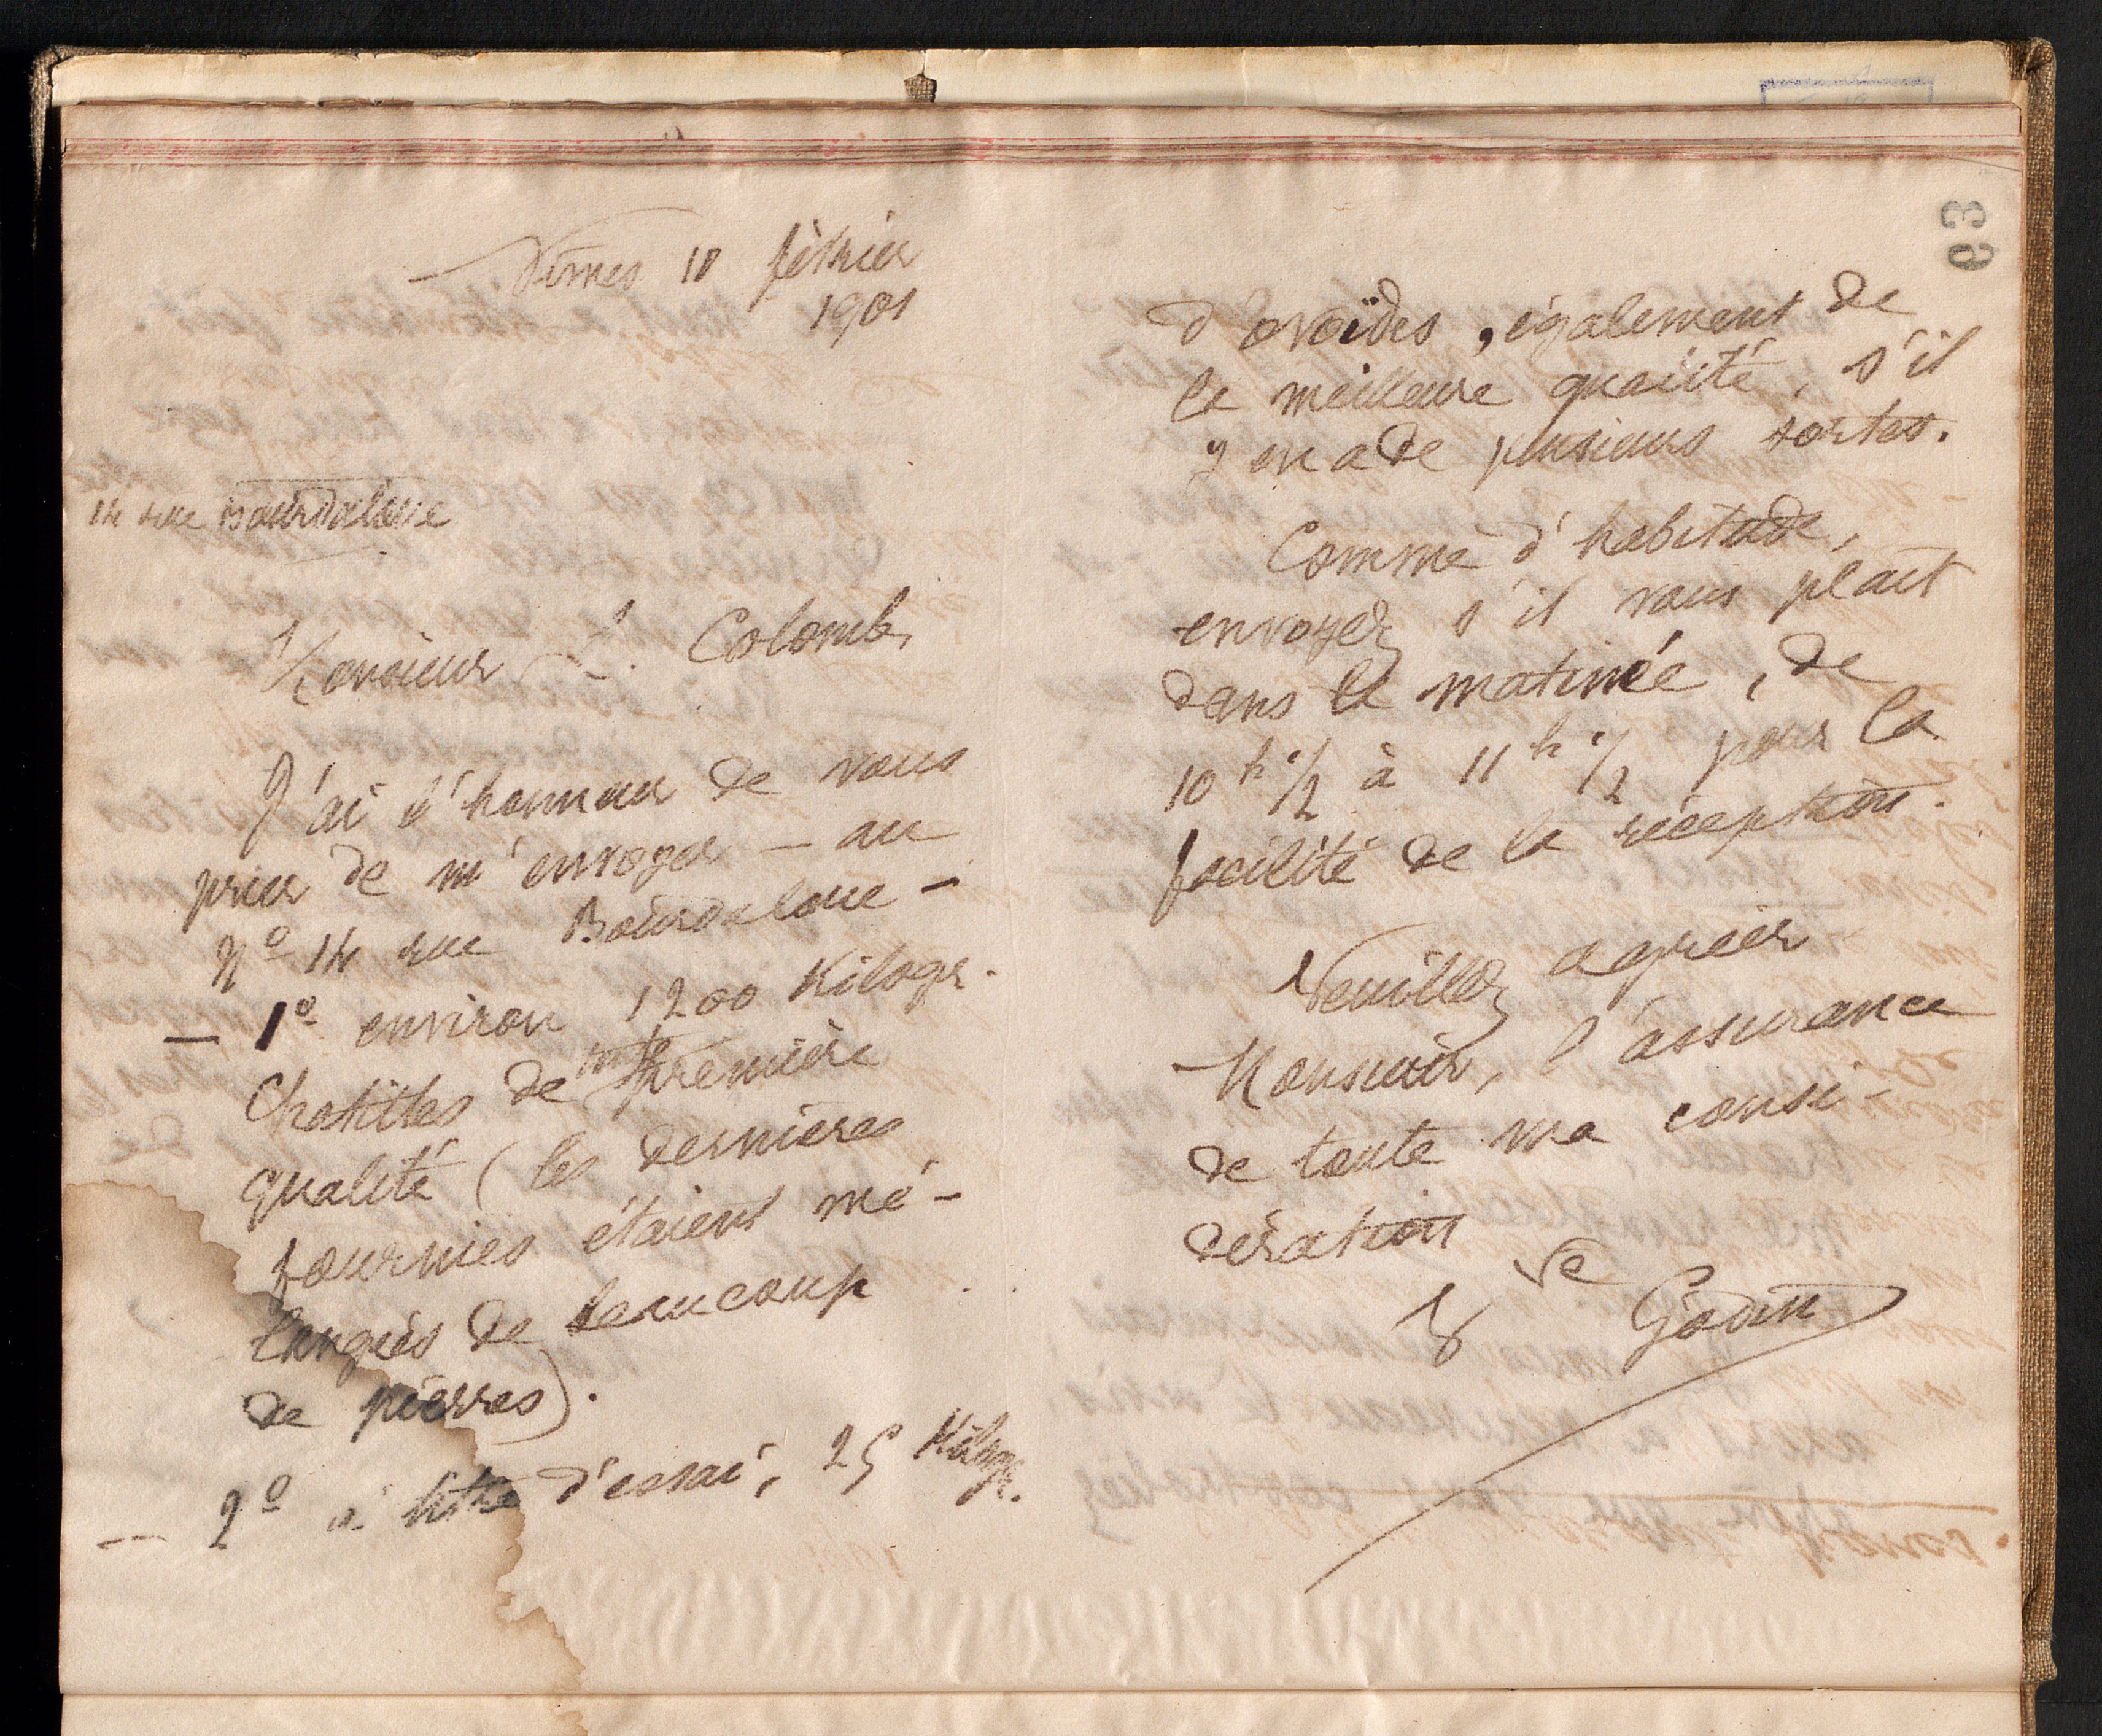 Nîmes 18 février
1901
14 rue Bourdaloue
Monsieur L. Colomb,
J'ai l'honneur de vous
prier de m'envoyer – au
Nº 14 rue Bourdaloue –
– 1º environ 1200 Kilogr.
Chatilles de première
qualité (les dernières
fournies étaient mé-
langées de beaucoup
de pierres).
– 2º à titre d'essai, 25 Kilogr.
63
d'ovoïdes, également de
la meilleure qualité, s'il
y en a de plusieurs sortes.
Comme d'habitude,
envoyez s'il vous plaît
dans la matinée, de
10 h 1/2 à 11 h 1/2 pour la
facilité de la réception.
Veuillez agréer
Monsieur, l'assurance
de toute ma consi-
dération
Vve Godin